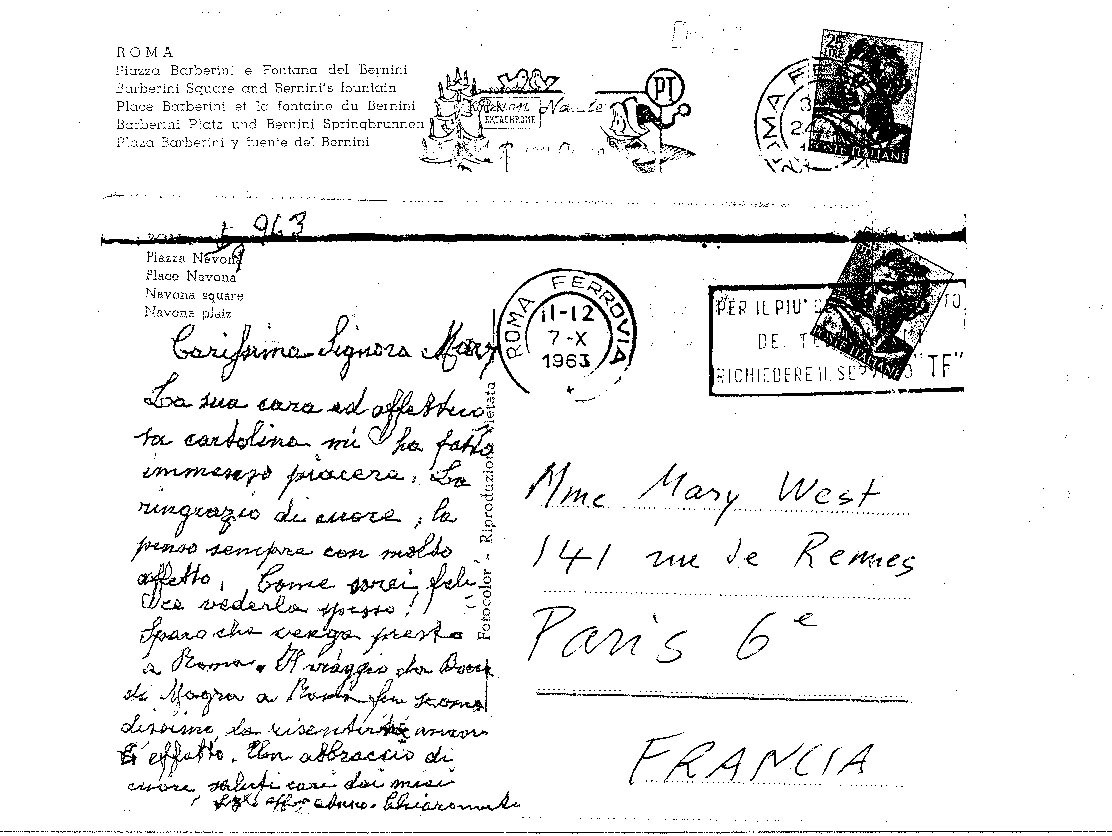 ROMA
Piazza Barberini e Fontana del Bernini
Barberini Square and Bernini's fountain
Place Barberini et la fontaine du Bernini
Barberini Platz und Bernini Springbrunnen
Plaza Barberini y fuente del Bernini
EKTACHROME
PT
963
Piazza Navona
Place Navona
Navona square
Navona platz
ROMA FERROVIA
11-12
7-X
1963
PER IL PIU'
RICHIEDERE IL "TF"
Fotocolor - Riproduzione vietata
Carissima Signora Mary
La sua cara ed affettuo
sa cartolina mi ha fatto
immenso piacere. La
ringrazio di cuore, la
penso sempre con molto
affetto. Come sarei feli
ce vederla spesso!
Spero che venga presto
a Roma. Il viaggio da Bocca
di Magra a Roma fu
ancora
l'effetto. Un abbraccio di
cuore, saluti cari dai miei
Mme Mary West
141 rue de Rennes
Paris 6e
FRANCIA